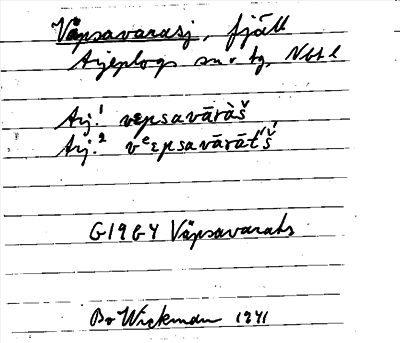 Väpsavarasj, fjäll
Arjeplogs sn o tg, Nbtl
Arj.¹ vepsavāràš
Arj.² vᵉɛpsavārāt́š́
G1964 Väpsavarats
Bo Wickman 1941